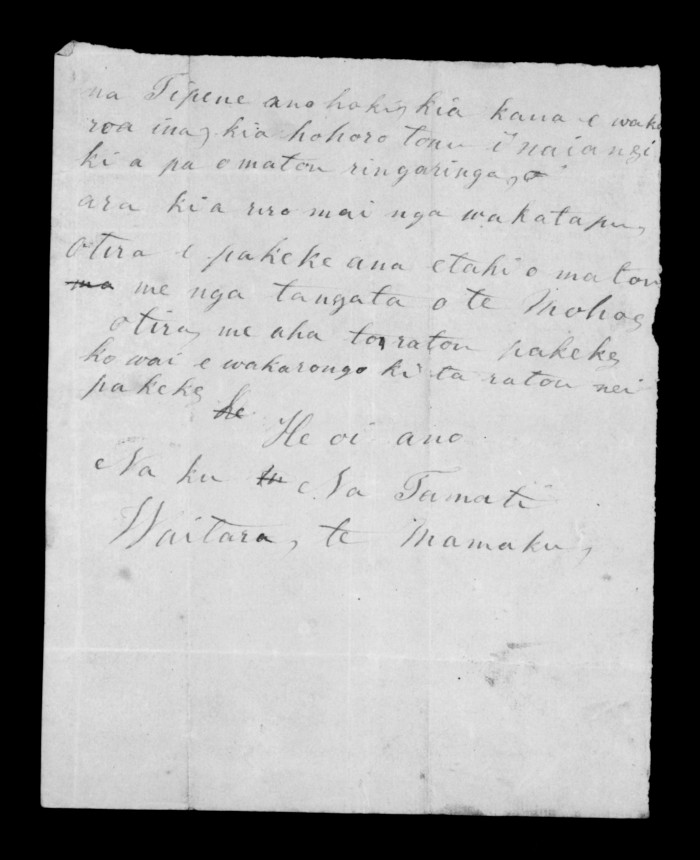 na Tipene ano hoki, kia kaua e waka
roa ina, kia hohoro tonu inaianei
ki a pa o matou ringaringa,
ara kia riro mai nga wakatapu,
otira e pakeke ana etahi o matou
me nga tangata o te
otira, me aha to ratou pakeke,
ko wai e wakarongo ki ta ratou nei
pakeke,
He oi ano
Na ku Na Tamati
Waitara, te Mamaku,